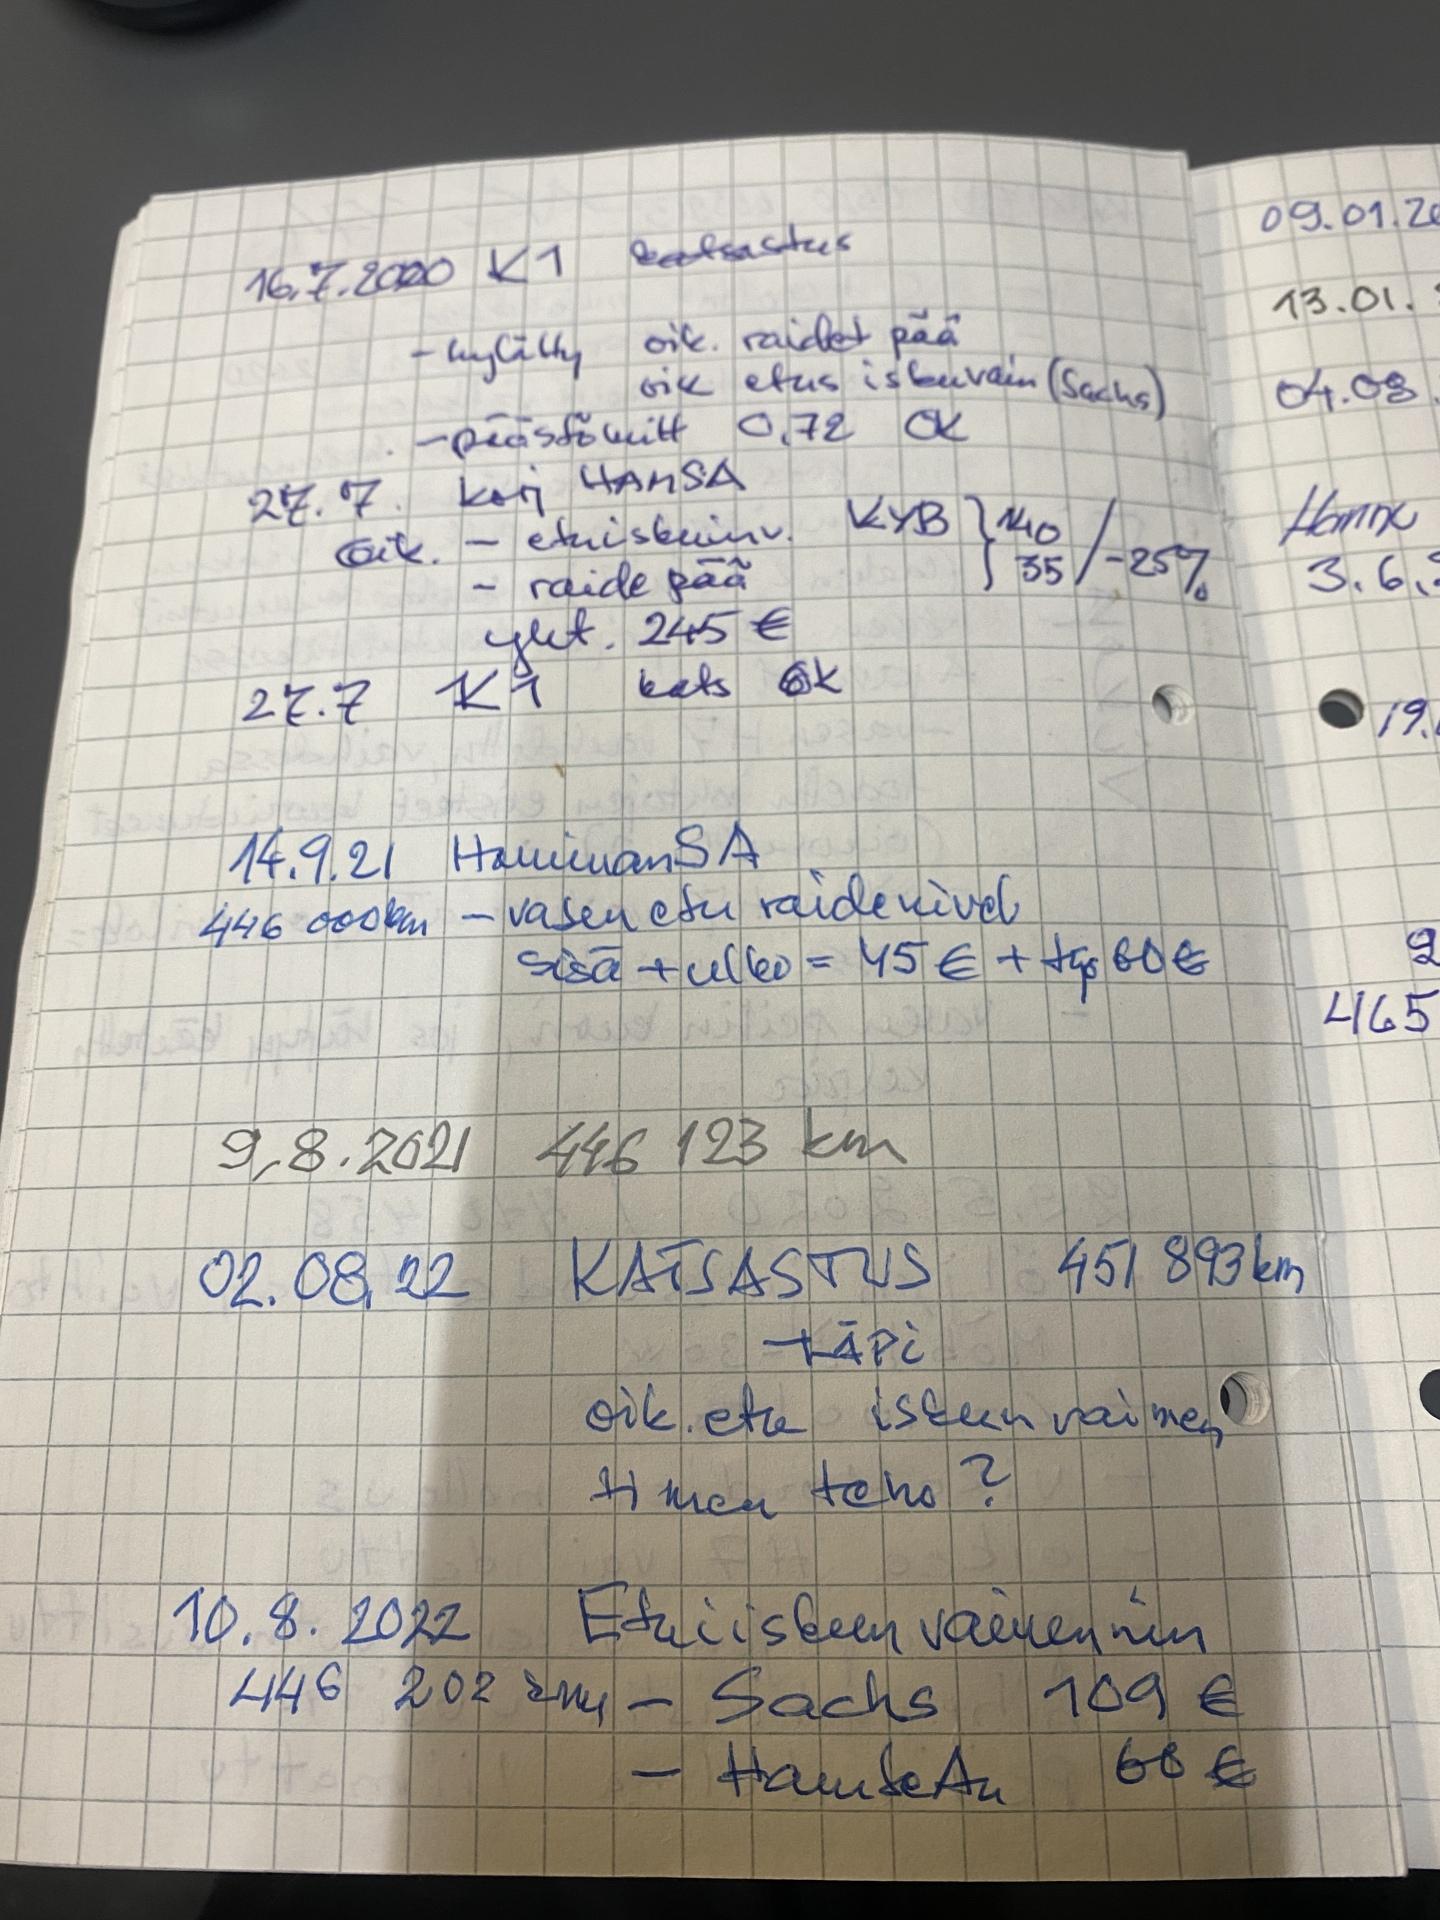 16.7.2020 K1 katsastus
- hylätty oik. raidet pää
oik etus iskuvain (Sachs)
- päästömitt 0,72 OK
27.7. korj HAMSA
oik. - etuiskunv. KYB } 140 / -25%
- raide pää 35
yht. 245 €
27.7 K1 kats OK
14.9.21 HaminanSA
446 000km - vasen etu raidenivel
sisä + ulko = 45 € + työ 60 €
9.8.2021 446 123 km
02.08.22 KATSASTUS 451 893 km
- LÄPI
oik. etu iskunvaimen
timen teho?
10.8.2022 Etuiiskunvaimennin
446 202 km - Sachs 109 €
- 60 €
09.01.20
13.01.
04.08.
3.6.
19.
2
465